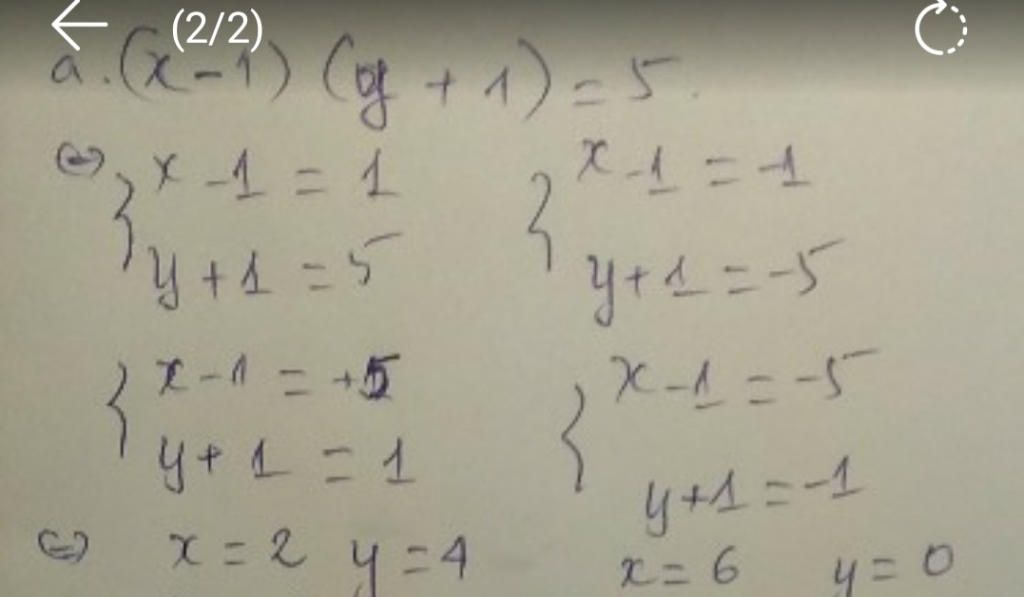 (2/2)
a. (x-1) (y + 1) = 5.
(=) { x - 1 = 1 { x - 1 = -1
y + 1 = 5 y + 1 = -5
{ x - 1 = +5 { x - 1 = -5
y + 1 = 1 y + 1 = -1
(=) x = 2 y = 4 x = 6 y = 0